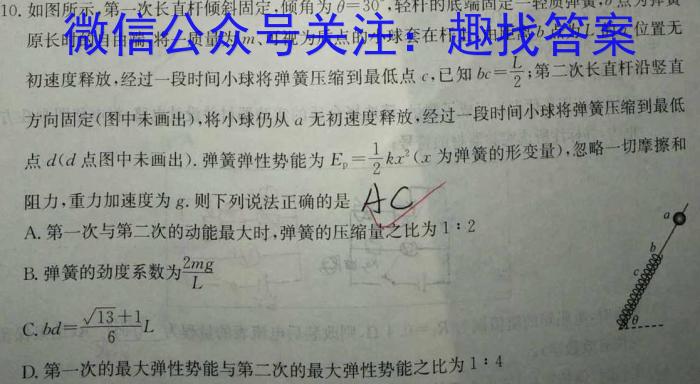 10. 如图所示,第一次长直杆倾斜固定,倾角为θ=30°,轻杆的底端固定一轻质弹簧,b点为弹簧
微信公众号关注:趣找答案
原长
位置无
初速度释放,经过一段时间小球将弹簧压缩到最低点c,已知bc=L/2;第二次长直杆沿竖直
方向固定(图中未画出),将小球仍从a无初速度释放,经过一段时间小球将弹簧压缩到最低
点d(d点图中未画出).弹簧弹性势能为Eₚ=1/2kx²(x为弹簧的形变量),忽略一切摩擦和
阻力,重力加速度为g.则下列说法正确的是 AC
A. 第一次与第二次的动能最大时,弹簧的压缩量之比为1∶2
B. 弹簧的劲度系数为2mg/L
C. bd=(√13+1)/6 L
D. 第一次的最大弹性势能与第二次的最大弹性势能之比为1∶4
a
b
c
θ